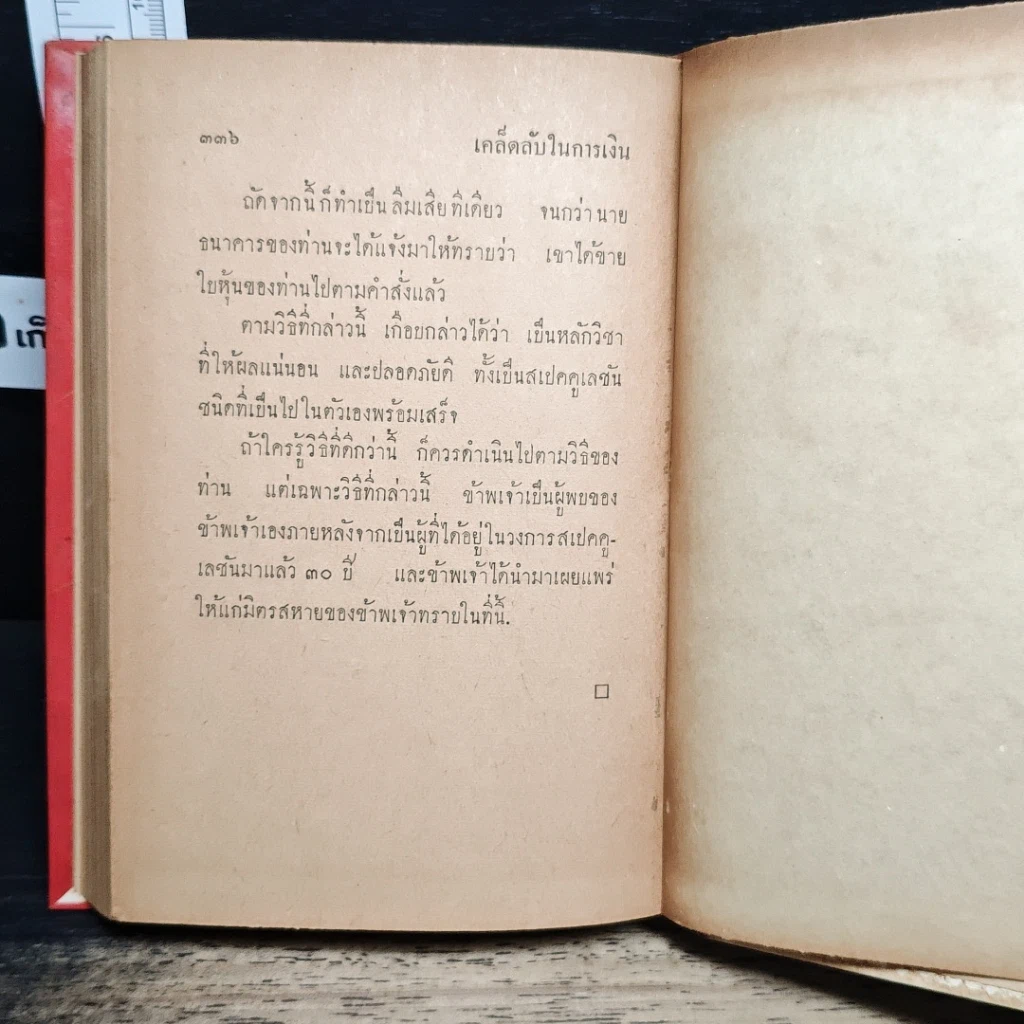 ๓๓๖ เคล็ดลับในการเงิน
ถัดจากนี้ก็ทำเป็นลืมเสียทีเดียว จนกว่านาย
ธนาคารของท่านจะได้แจ้งมาให้ทราบว่า เขาได้ขาย
ใบหุ้นของท่านไปตามคำสั่งแล้ว
ตามวิธีที่กล่าวนี้ เกือบกล่าวได้ว่า เป็นหลักวิชา
ที่ให้ผลแน่นอน และปลอดภัยดี ทั้งเป็นสเปคคูเลชัน
ชนิดที่เป็นไปในตัวเองพร้อมเสร็จ
ถ้าใครรู้วิธีที่ดีกว่านี้ ก็ควรดำเนินไปตามวิธีของ
ท่าน แต่เฉพาะวิธีที่กล่าวนี้ ข้าพเจ้าเป็นผู้พบของ
ข้าพเจ้าเองภายหลังจากเป็นผู้ที่ได้อยู่ในวงการสเปคคู-
เลชันมาแล้ว ๓๐ ปี และข้าพเจ้าได้นำมาเผยแพร่
ให้แก่มิตรสหายของข้าพเจ้าทราบในที่นี้.
เก็